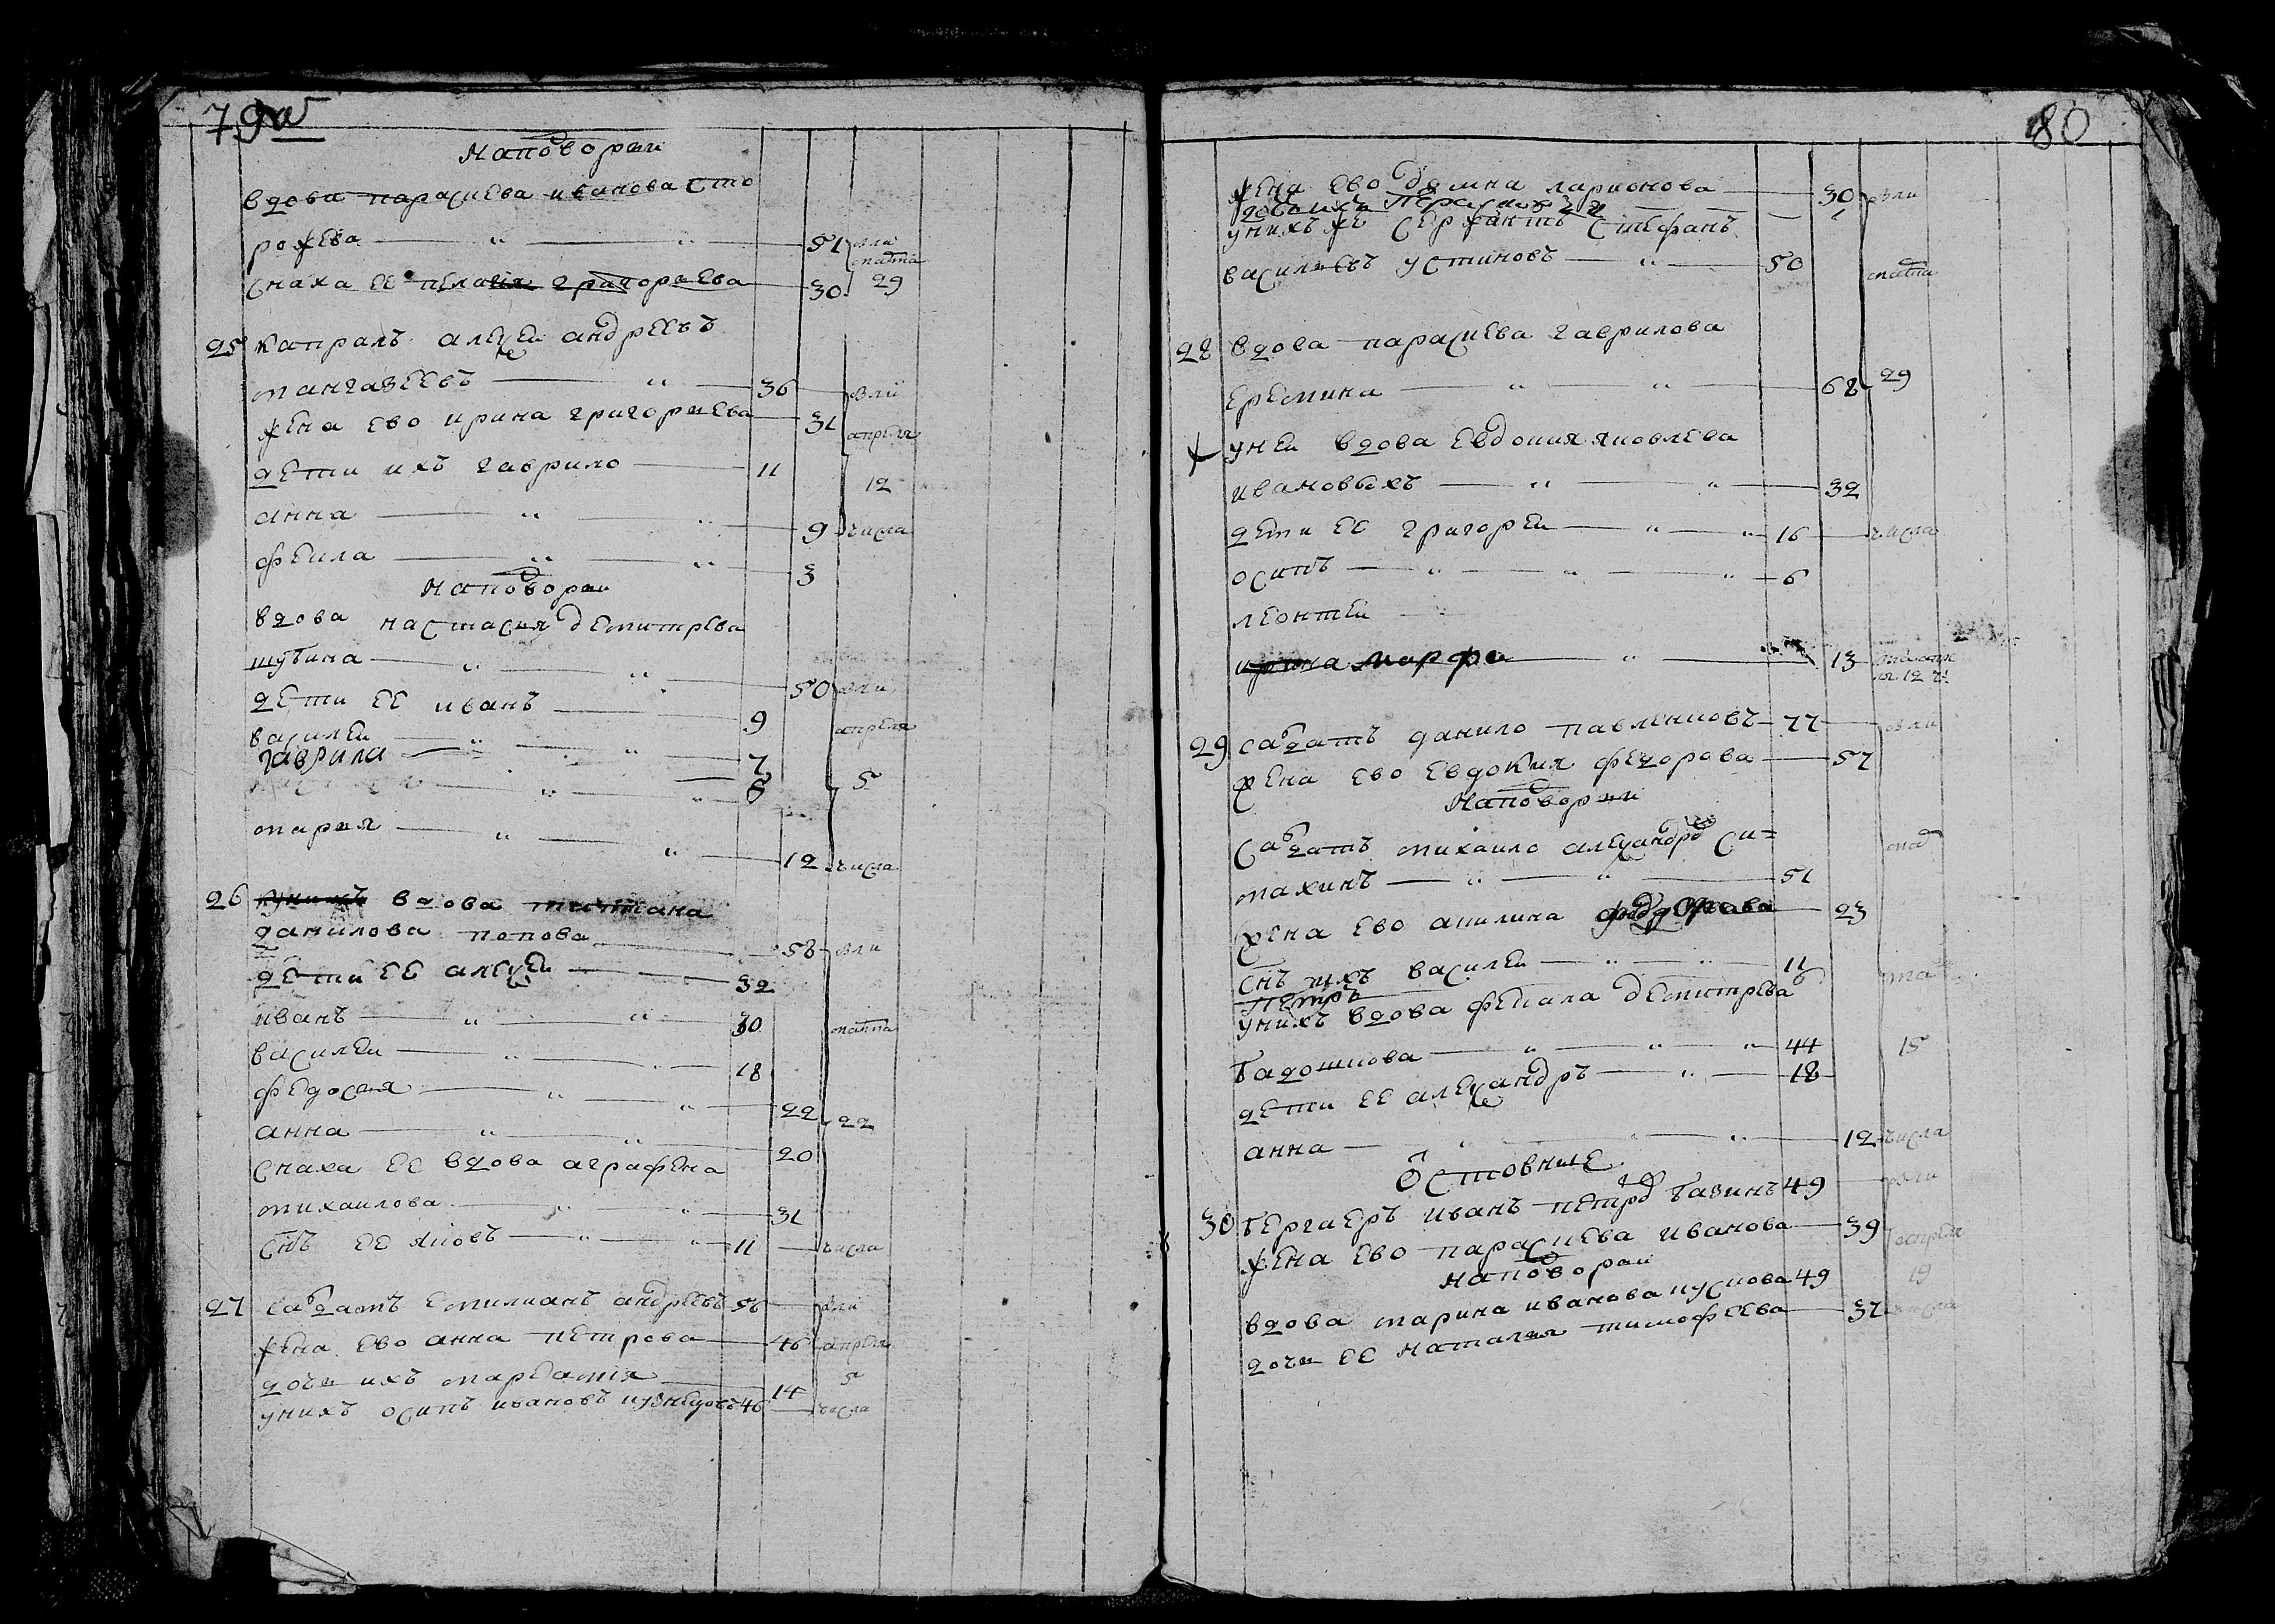 79
Наподворьи
вдова парасцева иванова сто
рожева — " — " — 51 были
марта
снаха ее пелагия григорьева — 30 29
25 капралъ алеѯеи андреевъ
мангазеевъ — " — 36 были
жена ево ирина григорьева — 31 апреля
дети ихъ гаврило — 11 12
анна — " — " — 9 числа
фекла — " — " — 3
Наподворьи
вдова настасия демитрева
шубина — " — " — 50 были
дети ее иванъ — 9 апреля
василеи — " — " — 7
гаврила — 5
мария — " — " — 12 числа
26 вдова
данилова попова — 58 были
дети ее алеѯеи — 32
иванъ — " — " — 30 марта
василеи — " — " — 18
федосия — " — " — 22 22
анна — " — " — 20
снаха ее вдова аграфена
михаилова — " — " — 31
снъ ее яковъ — " — " — 11 числа
27 салдатъ емилианъ андреевъ 56 были
жена ево анна петрова — 46 апреля
дочь ихъ маремия — 14 5
унихъ осипъ ивановъ кузнецовъ 46 числа
80
жена ево домна ларионова — 30 были
унихъ же сержантъ стефанъ
васильевъ устиновъ — " — 50 марта
28 вдова парасцева гаврилова
еремина — " — " — 68 29
унеи вдова евдокия яковлева
ивановыхъ — " — " — 32
дети ее григореи — " — " — 16 числа
осипъ — " — " — " — 6
леонтеи
ирина марфа — " — 13
29 салдатъ данило павленковъ — 77 были
жена ево евдокия федорова — 57
Наподворьи
салдатъ михаило алеѯандров си=
махинъ — " — " — 51
жена ево акилина федорова — 23
снъ ихъ василеи — " — " — 11
петръ
унихъ вдова фекла демитрева
бадошкова — " — " — " 44 15
дети ее алеѯандръ — " — 18
анна — " — " — " — 12 числа
Отставные
30 бергаеръ иванъ петров базинъ 49 были
жена ево парасцева иванова — 39 апреля
наподворьи 19
вдова марина иванова кускова 49
дочь ее наталия тимофеева — 37 числа